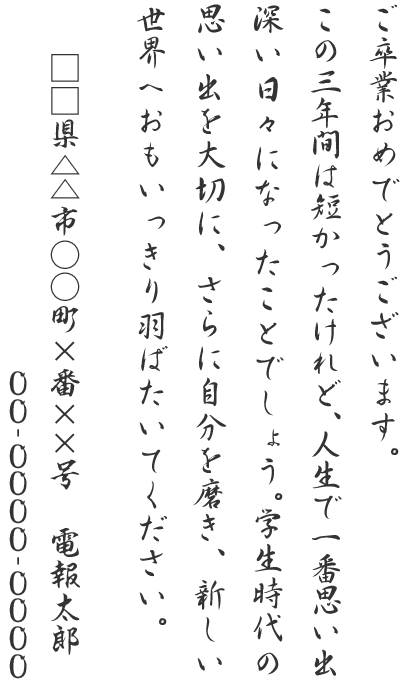 ご卒業おめでとうございます。
この三年間は短かったけれど、人生で一番思い出
深い日々になったことでしょう。学生時代の
思い出を大切に、さらに自分を磨き、新しい
世界へおもいっきり羽ばたいてください。
□□県△△市○○町×番××号　電報太郎
00-0000-0000